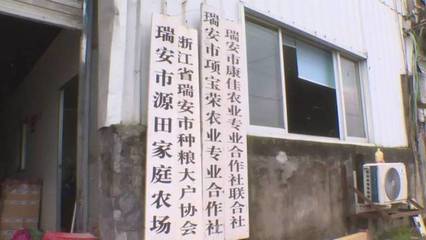 瑞安市源田家庭农场
浙江省瑞安市种粮大户协会
瑞安市项宝荣农业专业合作社
瑞安市康佳农业专业合作社联合社